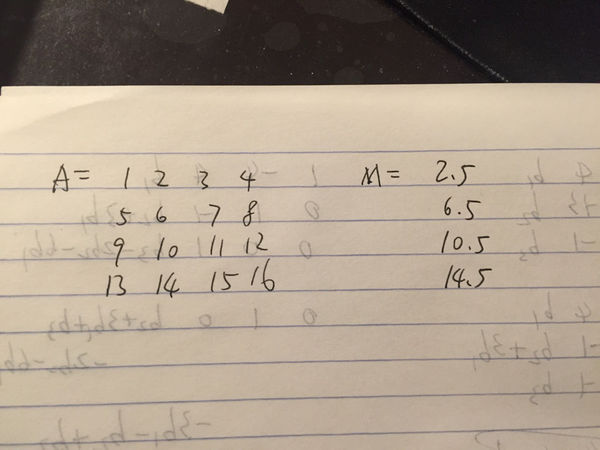 A= 1 2 3 4 M= 2.5
5 6 7 8 6.5
9 10 11 12 10.5
13 14 15 16 14.5